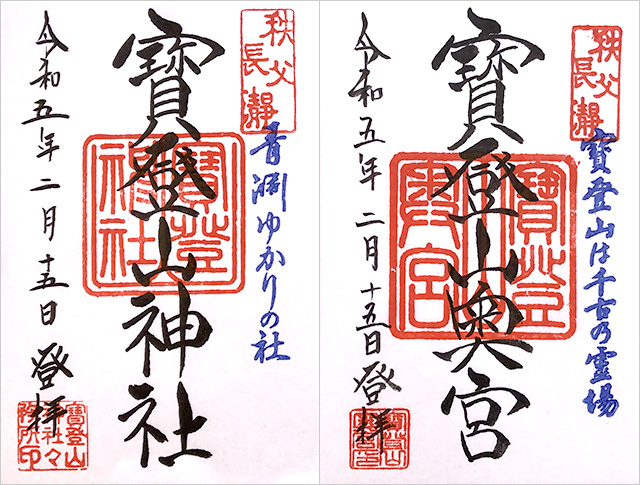 秩父
長瀞
青淵ゆかりの社
寳登山神社
寳登山
神社
令和五年二月十五日 登拝
寳登山
神社々
務所印
秩父
長瀞
寳登山は千古乃霊場
寳登山奥宮
寳登山
奥宮
令和五年二月十五日登拝